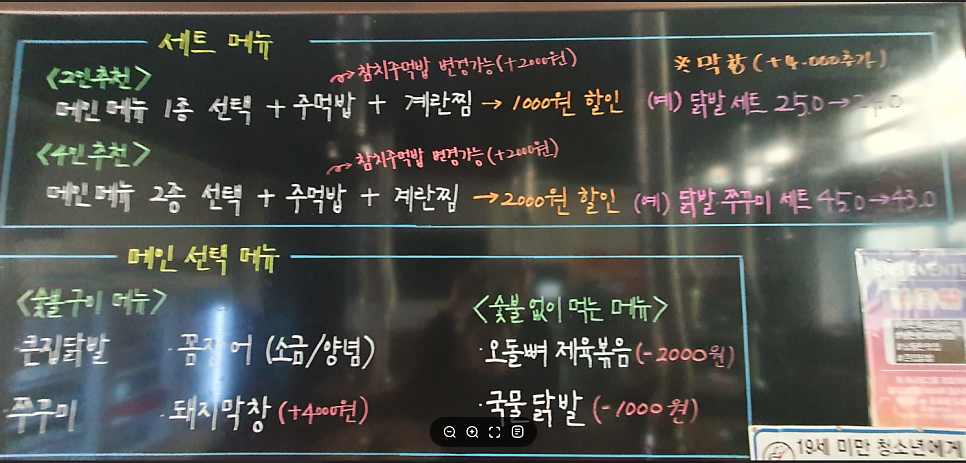 세트 메뉴
<2인추천>
참치주먹밥 변경가능(+2000원)
※ 막창 (+4.000추가)
메인 메뉴 1종 선택 + 주먹밥 + 계란찜 → 1000원 할인 (예) 닭발 세트 25.0→24.0
<4인추천>
참치주먹밥 변경가능(+2000원)
메인메뉴 2종 선택 + 주먹밥 + 계란찜 →2000원 할인 (예) 닭발 쭈꾸미 세트 45.0→43.0
메인 선택 메뉴
<숯불구이 메뉴>
<숯불 없이 먹는 메뉴>
·큰집닭발 ·꼼장어 (소금/양념)
·오돌뼈 제육볶음 (-2000원)
·쭈꾸미 ·돼지막창 (+4000원)
·국물닭발 (-1000원)
SNS EVENT!
19세 미만 청소년에게